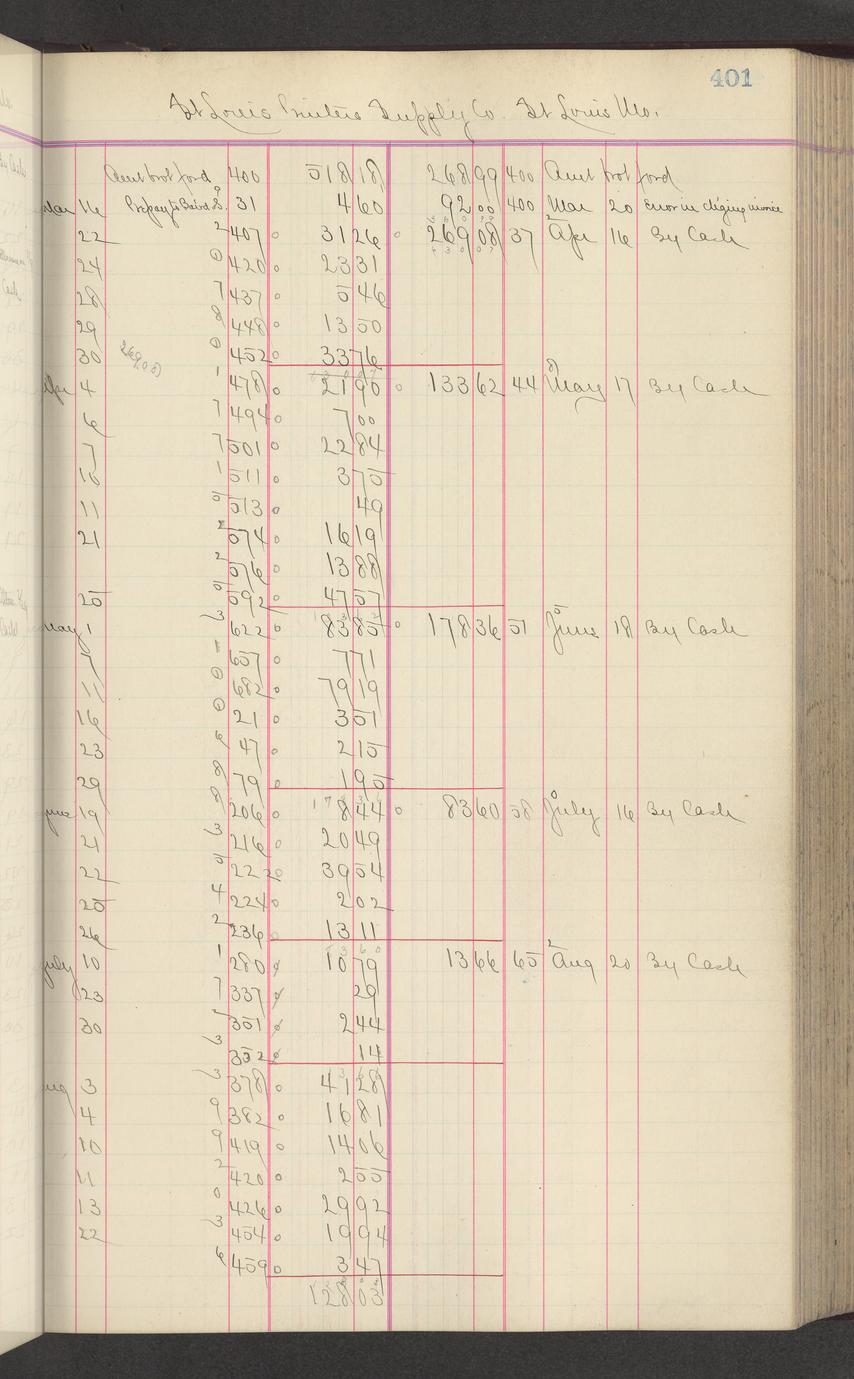 401
St Louis Printers Supply Co. St Louis Mo.
Amt brot ford 400 518 18 268 99 400 Amt brot ford
Mar 16 Prepay to Baird & 9 31 4 60 92 00 400 Mar 20 Error in chging invoice
22 2 407 31 26 269 08 37 2 Apr 16 By Cash
24 0 420 23 31
28 7 437 5 46
29 8 448 13 50
30 269.08 0 452 33 76
Apr 4 1 478 21 90 133 62 44 8 May 17 By Cash
6 7 494 7 00
7 7 501 22 84
10 1 511 3 75
11 5 513 49
21 2 574 16 19
2 576 13 88
25 5 592 47 57
May 1 3 622 83 85 178 36 51 5 June 18 By Cash
7 657 7 71
11 0 682 79 19
16 0 21 3 51
23 6 47 2 15
29 8 79 1 95
June 19 8 206 8 44 83 60 58 0 July 16 By Cash
21 3 216 20 49
22 5 222 39 54
25 4 224 2 02
26 2 236 13 11
July 10 1 280 10 79 13 66 65 2 Aug 20 By Cash
23 7 337 29
30 351 2 44
3 352 14
Aug 3 3 378 41 28
4 9 382 16 81
10 9 419 14 06
11 2 420 2 55
13 0 426 29 92
22 3 454 19 94
6 459 3 47
128 03